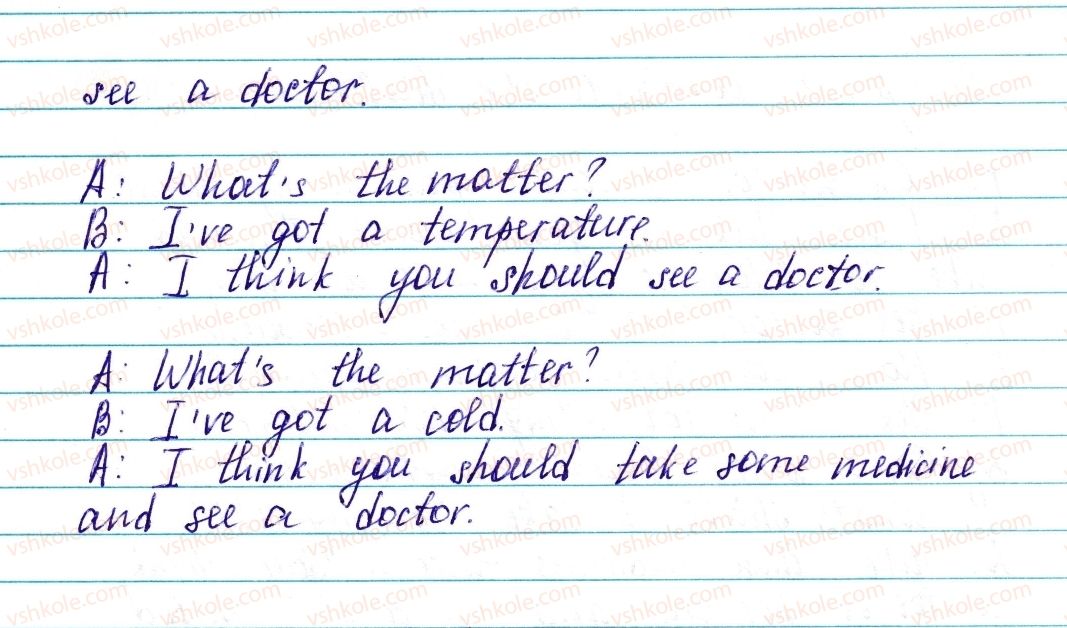 see a doctor.
A: What's the matter?
B: I've got a temperature.
A: I think you should see a doctor.
A: What's the matter?
B: I've got a cold.
A: I think you should take some medicine
and see a doctor.